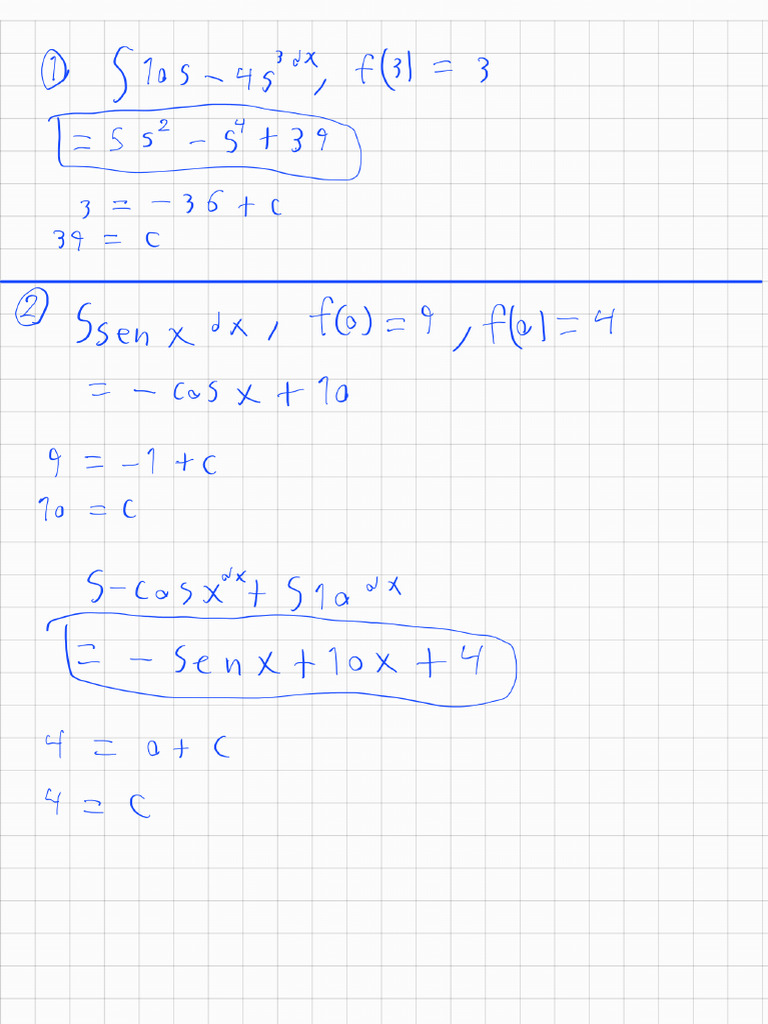 ① ∫10s - 4s³ dx, f(3) = 3
= 5s² - s⁴ + 39
3 = -36 + c
39 = c
② ∫sen x dx, f(0) = 9, f(0) = 4
= - cos x + 10
9 = -1 + c
10 = c
∫-cos x dx + ∫10 dx
= - sen x + 10x + 4
4 = 0 + c
4 = c